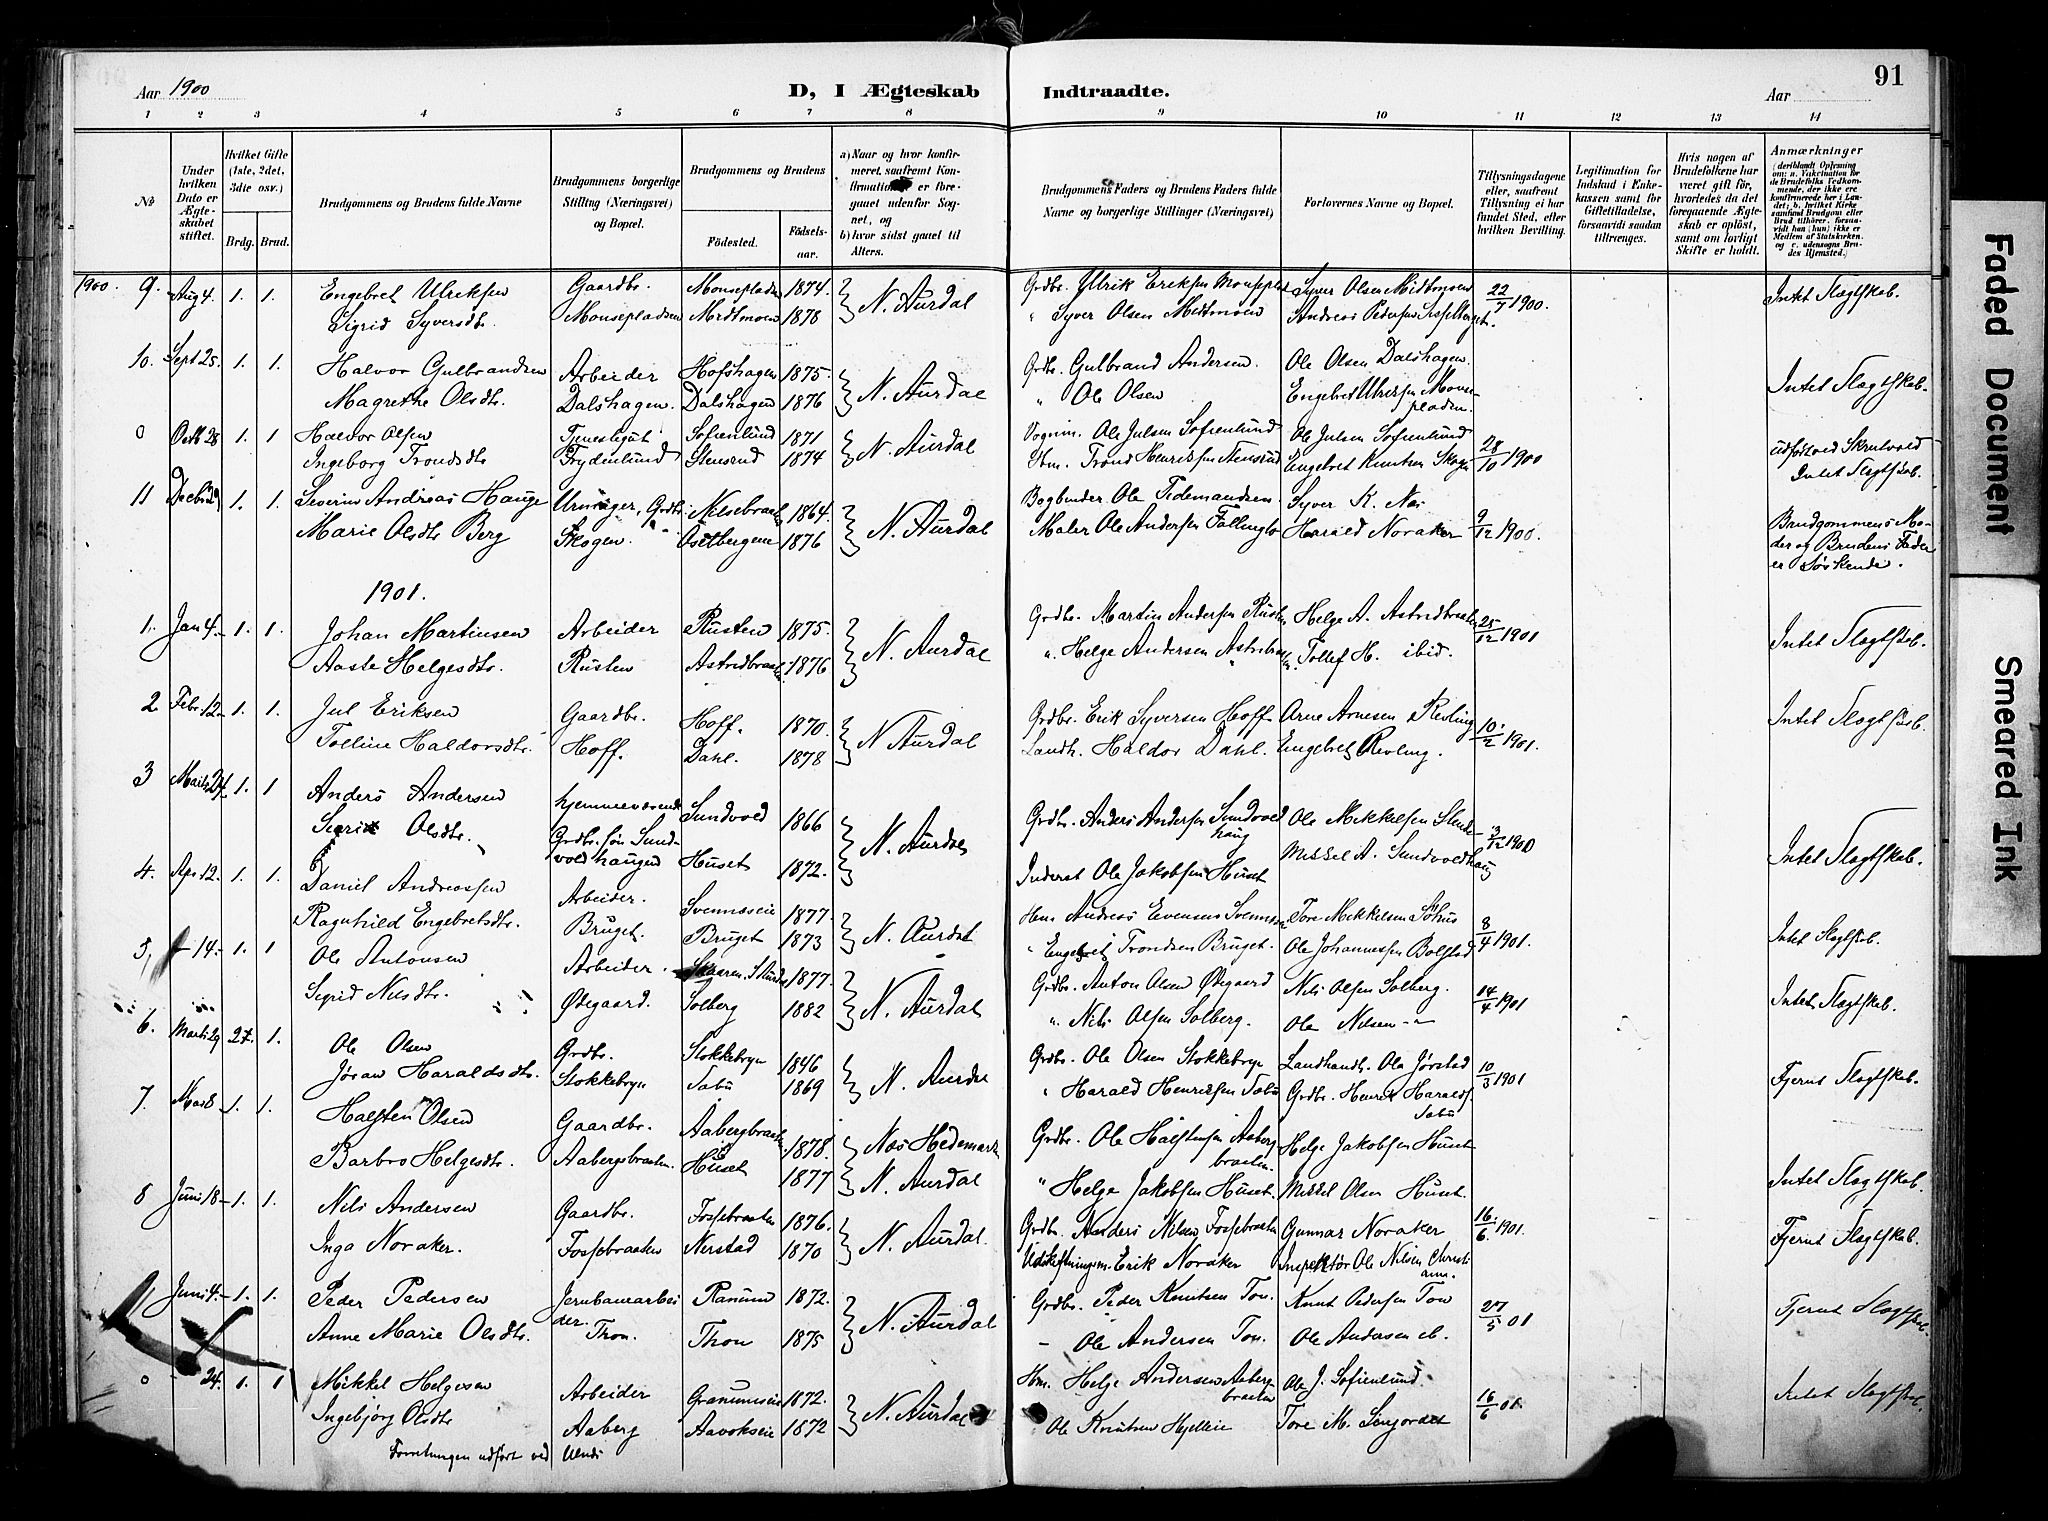 91
Aar 1900
D, I Ægteskab Indtraadte.
Aar
1 2 3 4 5 6 7 8 9 10 11 12 13 14
No
Under hvilken Dato er Ægteskabet stiftet.
Hvilket Gifte (1ste, 2det, 3die osv.)
Brdg. Brud.
Brudgommens og Brudens fulde Navne
Brudgommens borgerlige Stilling (Næringsvei) og Bopæl.
Brudgommens og Brudens
Fødested. Fødselsaar.
a) Naar og hvor konfirmeret, saafremt Konfirmationen er foregaaet udenfor Sognet, og
b) hvor sidst gaaet til Alters.
Brudgommens Faders og Brudens Faders fulde Navne og borgerlige Stillinger (Næringsvei)
Forlovernes Navne og Bopæl.
Tillysningsdagene eller, saafremt Tillysning ei har fundet Sted, efter hvilken Bevilling.
Legitimation for Indskud i Enkekassen samt for Giftetilladelse, forsaavidt saadan tiltrænges.
Hvis nogen af Brudefolkene har været gift før, hvorledes da det foregaaende Ægteskab er opløst, samt om lovligt Skifte er holdt.
Anmærkninger
(deriblandt Oplysning om: a. Vakcination for de Brudefolks Vedkommende, der ikke ere konfirmerede her i Landet; b. hvilket Kirkesamfund Brudgom eller Brud tilhører, forsaavidt han (hun) ikke er Medlem af Statskirken, og c. udensogns Brudes Hjemsted.)
1900. 9. Aug 4. 1. 1. Engebret Ulriksen Gaardbr. Monsepladsen 1874. N. Aurdal Grdbr. Ulrik Eriksen Monseplads Syver Olsen Midtmoen 22/7 1900. Intet Slagtskab.
Sigrid Syversdtr. Monsepladsen Midtmoen 1878 " Syver Olsen Midtmoen Andreas Pedersen
10. Sept 25. 1. 1. Halvor Gulbrandsen Arbeider Hofshagen 1875. N. Aurdal Grdbr. Gulbrand Andersen. Ole Olsen Dalshagen. Intet Slagtskab.
Magrethe Olsdtr. Dalshagen. Dalshagen 1876 " Ole Olsen Engebret Ulriksen Monsepladsen.
0 Octb 28. 1. 1 Halvor Olsen Tjenestegut Sofienlund 1871 N. Aurdal Vognm. Ole Julsen Sofienlund Ole Julsen Sofienlund 28/10 1900 udført ved Skrutvold
Ingeborg Trondsdtr Frydenlund Stensrud 1874 Hm. Trond Henriksen Stensrud Engebret Knutsen Skogen Intet Slagtskab.
11 Decbr 29 1. 1. Severin Andreas Hauge Urmager, Grdbr. Nilsebraaten 1864. N. Aurdal Bogbinder Ole Tidemandsen. Syver K. Nes 9/12 1900. Brudgommens Moder og Brudens Fader er Søskende.
Marie Olsdtr Berg Skogen. Østbergene 1876 Maler Ole Andersen Fallinglo Harald Noraker
1901.
1. Jan 4. 1. 1. Johan Martinsen Arbeider Rusten 1875. N. Aurdal Grdbr. Martin Andersen Rusten Helge A. Astridbraaten 25/12 1901 Intet Slagtskab.
Aaste Helgesdtr. Rusten Astridbraaten 1876 " Helge Andersen Astridbraaten Tollef H. ibid.
2 Febr. 12. 1. 1. Jul Eriksen Gaardbr. Hoff. 1870. N Aurdal Grdbr. Erik Syversen Hoff. Arne Arnesen Revling 10/2 1901. Intet Slagtskab.
Tolline Haldorsdtr. Hoff. Dahl. 1878 Landh. Haldor Dahl. Engebret Revling.
3 Marts 24. 1. 1 Anders Andersen hjemmeværende Sundvold 1866 N. Aurdal Grdbr. Anders Andersen Sundvoldhaug Ole Mikkelsen 3/12 1900 Intet Slagtskab.
Sigrid Olsdtr. Grdbr. søn Sundvoldhaugen Huset 1872. Inderst Ole Jakobsen Huset Mikkel A. Sundvoldhaug
4. Apr 12. 1. 1. Daniel Andreassen Arbeider. Svennæseie 1877. N. Aurdal Hm. Andreas Evensen Svennes Tore Mikkelsen 8/4 1901. Intet Slagtskab.
Ragnhild Engebretsdtr. Bruget. Bruget 1873 " Engebret Trondsen Bruget. Ole Johannessen Bolstad
5. - 14. 1. 1 Ole Antonsen Arbeider. Skaaren 1877. N. Aurdal Grdbr. Anton Olsen Øvegaard Nils Olsen Solberg. 14/4 1901 Intet Slagtskab.
Sigrid Nilsdtr. Øvegaard. Solberg 1882 " Nils Olsen Solberg. Ole Nilsen - "
6. Marts 29 2t. 1. Ole Olsen Grdbr. Stokkebryn 1846 N. Aurdal Grdbr. Ole Olsen Stokkebryn Landhandl. Ola Jørstad 10/3 1901 Fjernt Slagtskab.
Jøran Haraldsdtr. Stokkebryn Sabu 1869 " Harald Henriksen Sabu Grdbr. Henrik Haralds. Sabu
7. Mai 8 1. 1. Halsten Olsen Gaardbr. Aabergbraaten 1878. Næs Hedemarken Grdbr. Ole Halstensen Aabergbraaten. Helge Jakobsen Huset
Barbro Helgesdtr. Aabergsbraaten. Huset 1877 N. Aurdal " Helge Jakobsen Huset. Mikkel Olsen Huset. Intet Slagtskab.
8 Juni 18 1. 1. Nils Andersen Gaardbr. Fossebraaten 1876. N. Aurdal. Grdbr. Anders Nilsen Fossebraaten Gunnar Noraker 16/6 1901. Fjernt Slagtskab.
Inga Noraker. Fossebraaten Nerstad 1870 Udskiftningsm. Erik Noraker Inspektør Ole Nilsen Christiania.
Juni 4. 1. 1. Peder Pedersen Jernbanearbeider. Ranum 1872. N. Aurdal Grdbr. Peder Knutsen Ton. Knut Pedersen Ton 27/5 01 Fjernt Slagtskab.
Anne Marie Olsdtr. Thon. Thon 1875 - Ole Andersen Ton. Ole Andersen ib.
0 - 24. 1. 1 Mikkel Helgesen Arbeider Granumseie 1872. N. Aurdal Hm. Helge Andersen Aabergbraaten Ole J. Sofienlund. 16/6 01. Intet Slagtskab.
Ingebjørg Olsdtr Aaberg Aavokseie 1872 Ole Knutsen Hjelleie Tore M.
Forretningen udført ved Ulnæs
Faded Document
Smeared Ink